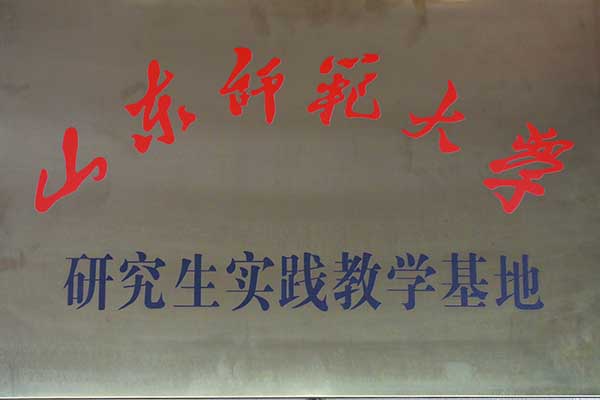 山东师范大学
研究生实践教学基地